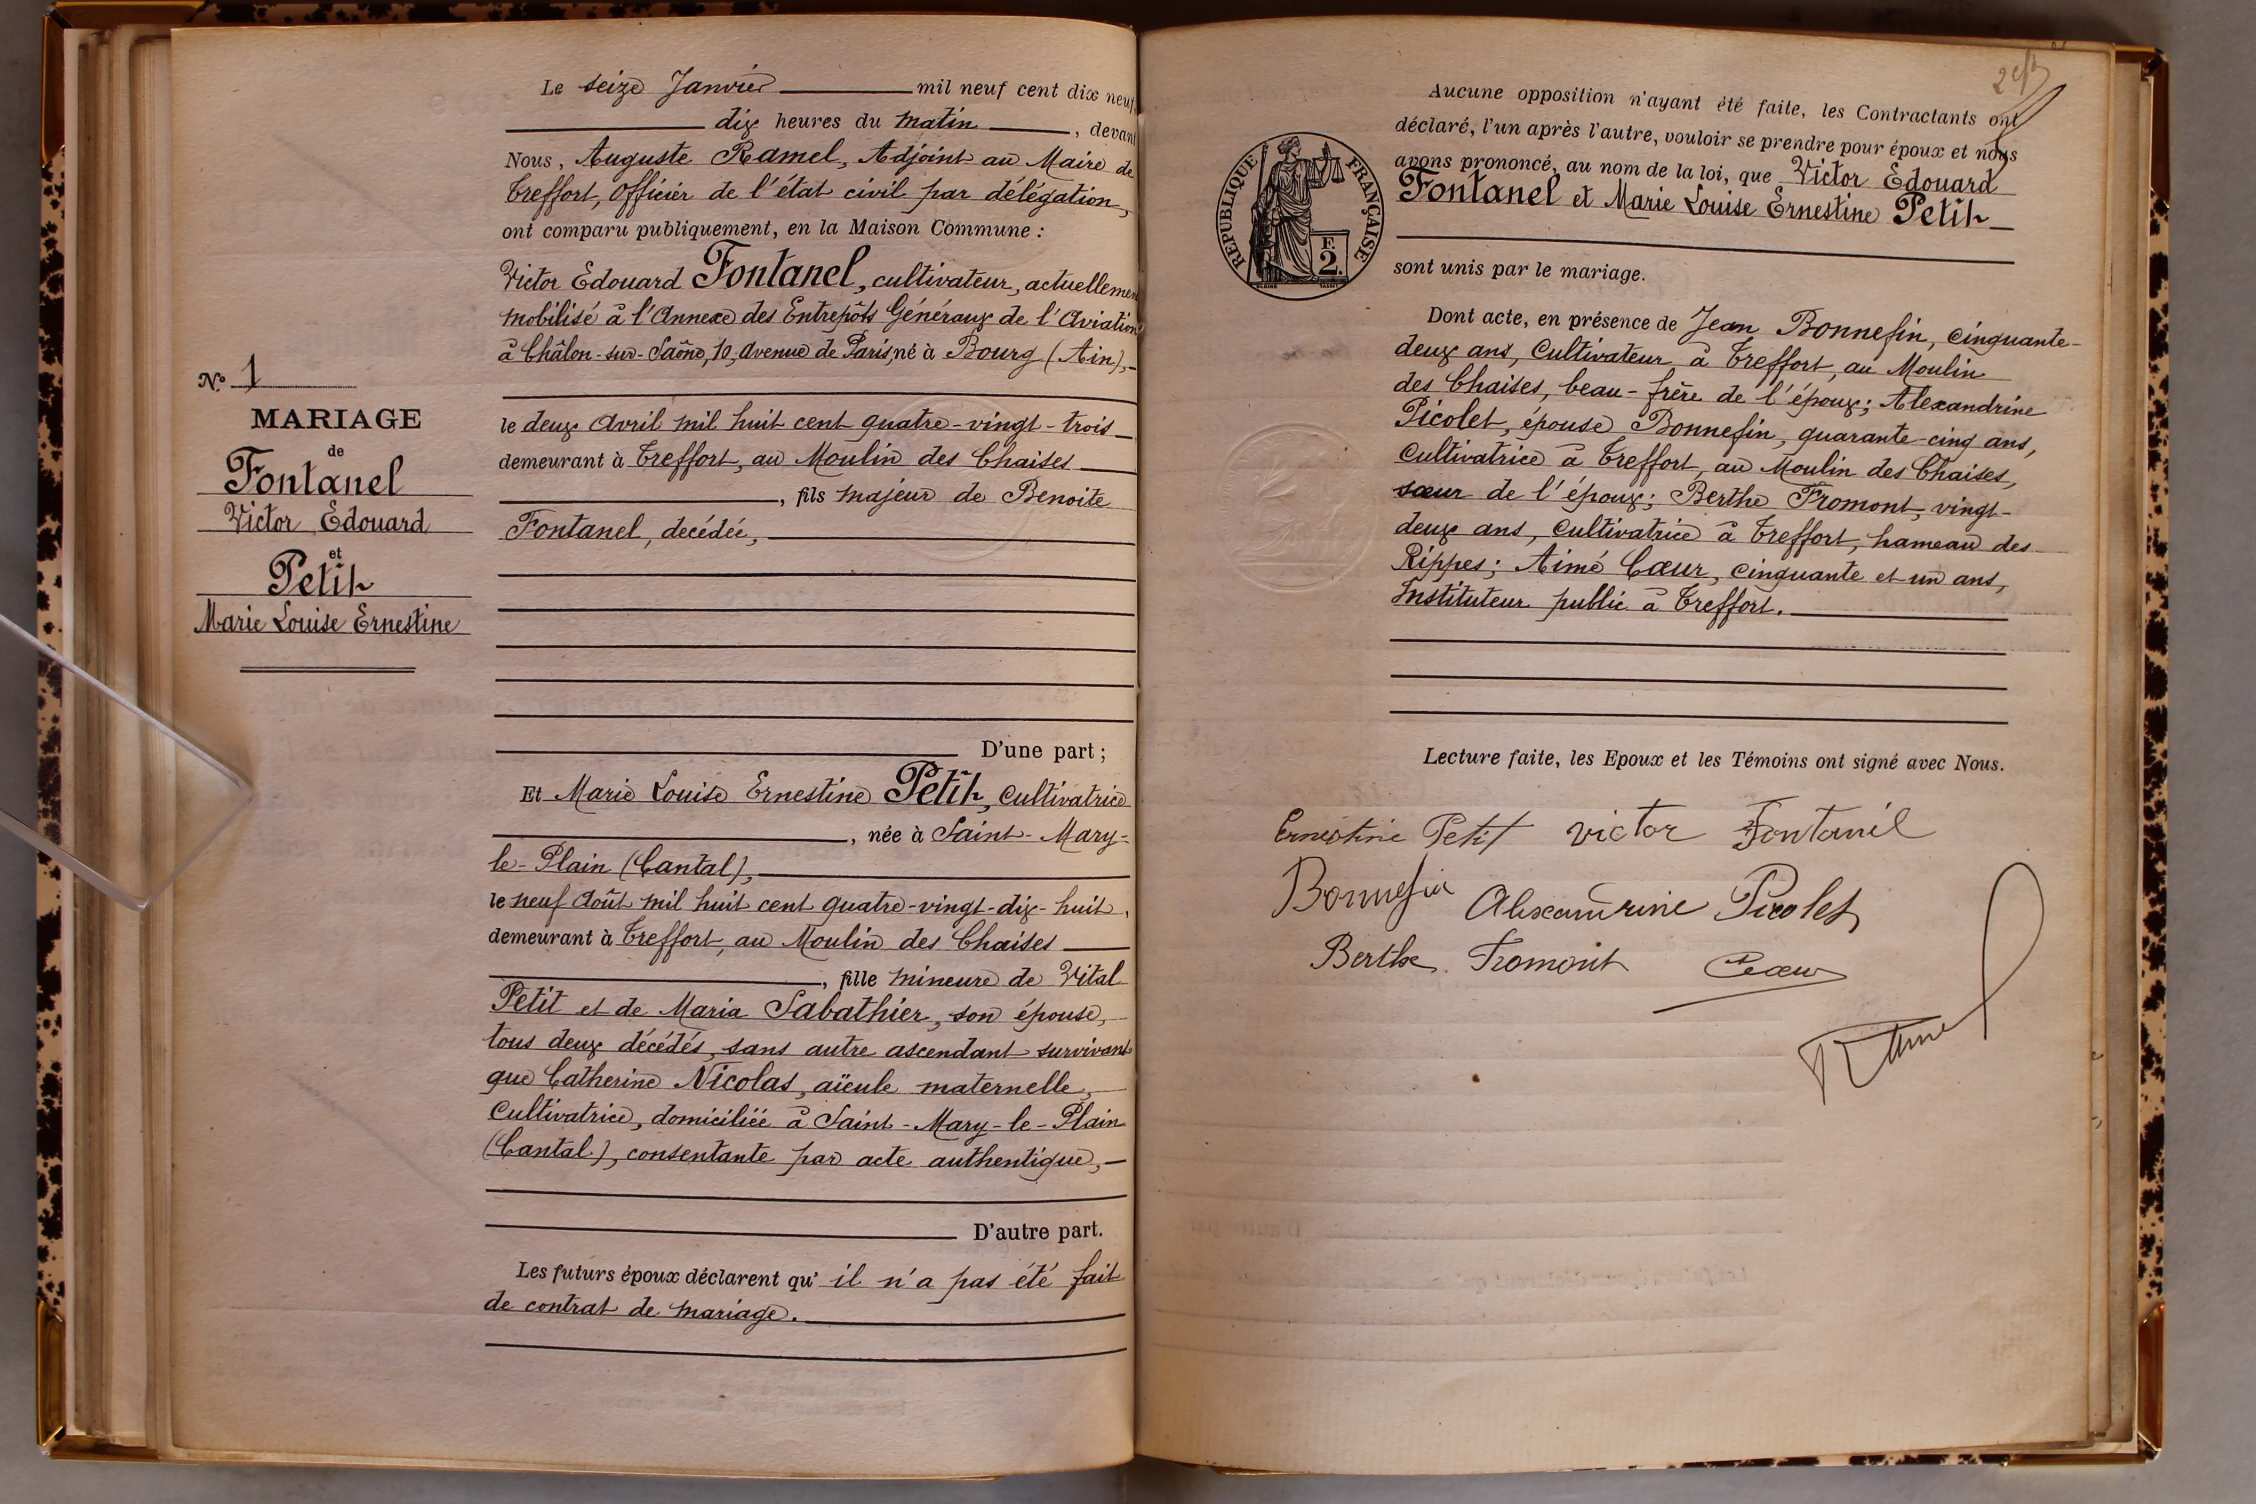 Le seize Janvier mil neuf cent dix neuf,
dix heures du matin, devant
Nous, Auguste Ramel, Adjoint au Maire de
Treffort, Officier de l'état civil par délégation,
ont comparu publiquement, en la Maison Commune :
Victor Edouard Fontanel, cultivateur, actuellement
mobilisé à l'Annexe des Entrepôts Généraux de l'Aviation
à Châlon-sur-Saône, 10, Avenue de Paris, né à Bourg (Ain),
le deux Avril mil huit cent quatre-vingt-trois
demeurant à Treffort, au Moulin des Chaises
, fils majeur de Benoite
Fontanel, decédée,
D'une part ;
Et Marie Louise Ernestine Petit, Cultivatrice
, née à Saint-Mary-
le-Plain (Cantal),
le neuf Août mil huit cent quatre-vingt-dix-huit,
demeurant à Treffort, au Moulin des Chaises
, fille mineure de Vital
Petit et de Maria Sabathier, son épouse,
tous deux décédés, sans autre ascendant survivant
que Catherine Nicolas, aïeule maternelle,
Cultivatrice, domiciliée à Saint-Mary-le-Plain
(Cantal), consentante par acte authentique,
D'autre part.
Les futurs époux déclarent qu'il n'a pas été fait
de contrat de mariage.
No. 1
MARIAGE
de
Fontanel
Victor Edouard
et
Petit
Marie Louise Ernestine
Aucune opposition n'ayant été faite, les Contractants ont
déclaré, l'un après l'autre, vouloir se prendre pour époux et nous
avons prononcé, au nom de la loi, que Victor Edouard
Fontanel et Marie Louise Ernestine Petit
sont unis par le mariage.
RÉPUBLIQUE FRANÇAISE
F.
2.
Dont acte, en présence de Jean Bonnefin, Cinquante-
deux ans, Cultivateur à Treffort, au Moulin
des Chaises, beau-frère de l'époux; Alexandrine
Picolet, épouse Bonnefin, quarante-cinq ans,
Cultivatrice à Treffort, au Moulin des Chaises,
sœur de l'époux; Berthe Fromont, vingt-
deux ans, Cultivatrice à Treffort, hameau des
Rippes; Aimé Cœur, Cinquante et un ans,
Instituteur public à Treffort.
Lecture faite, les Epoux et les Témoins ont signé avec Nous.
Ernestine Petit Victor Fontanel
Bonnefin Alexandrine Picolet
Berthe Fromont Cœur
Ramel